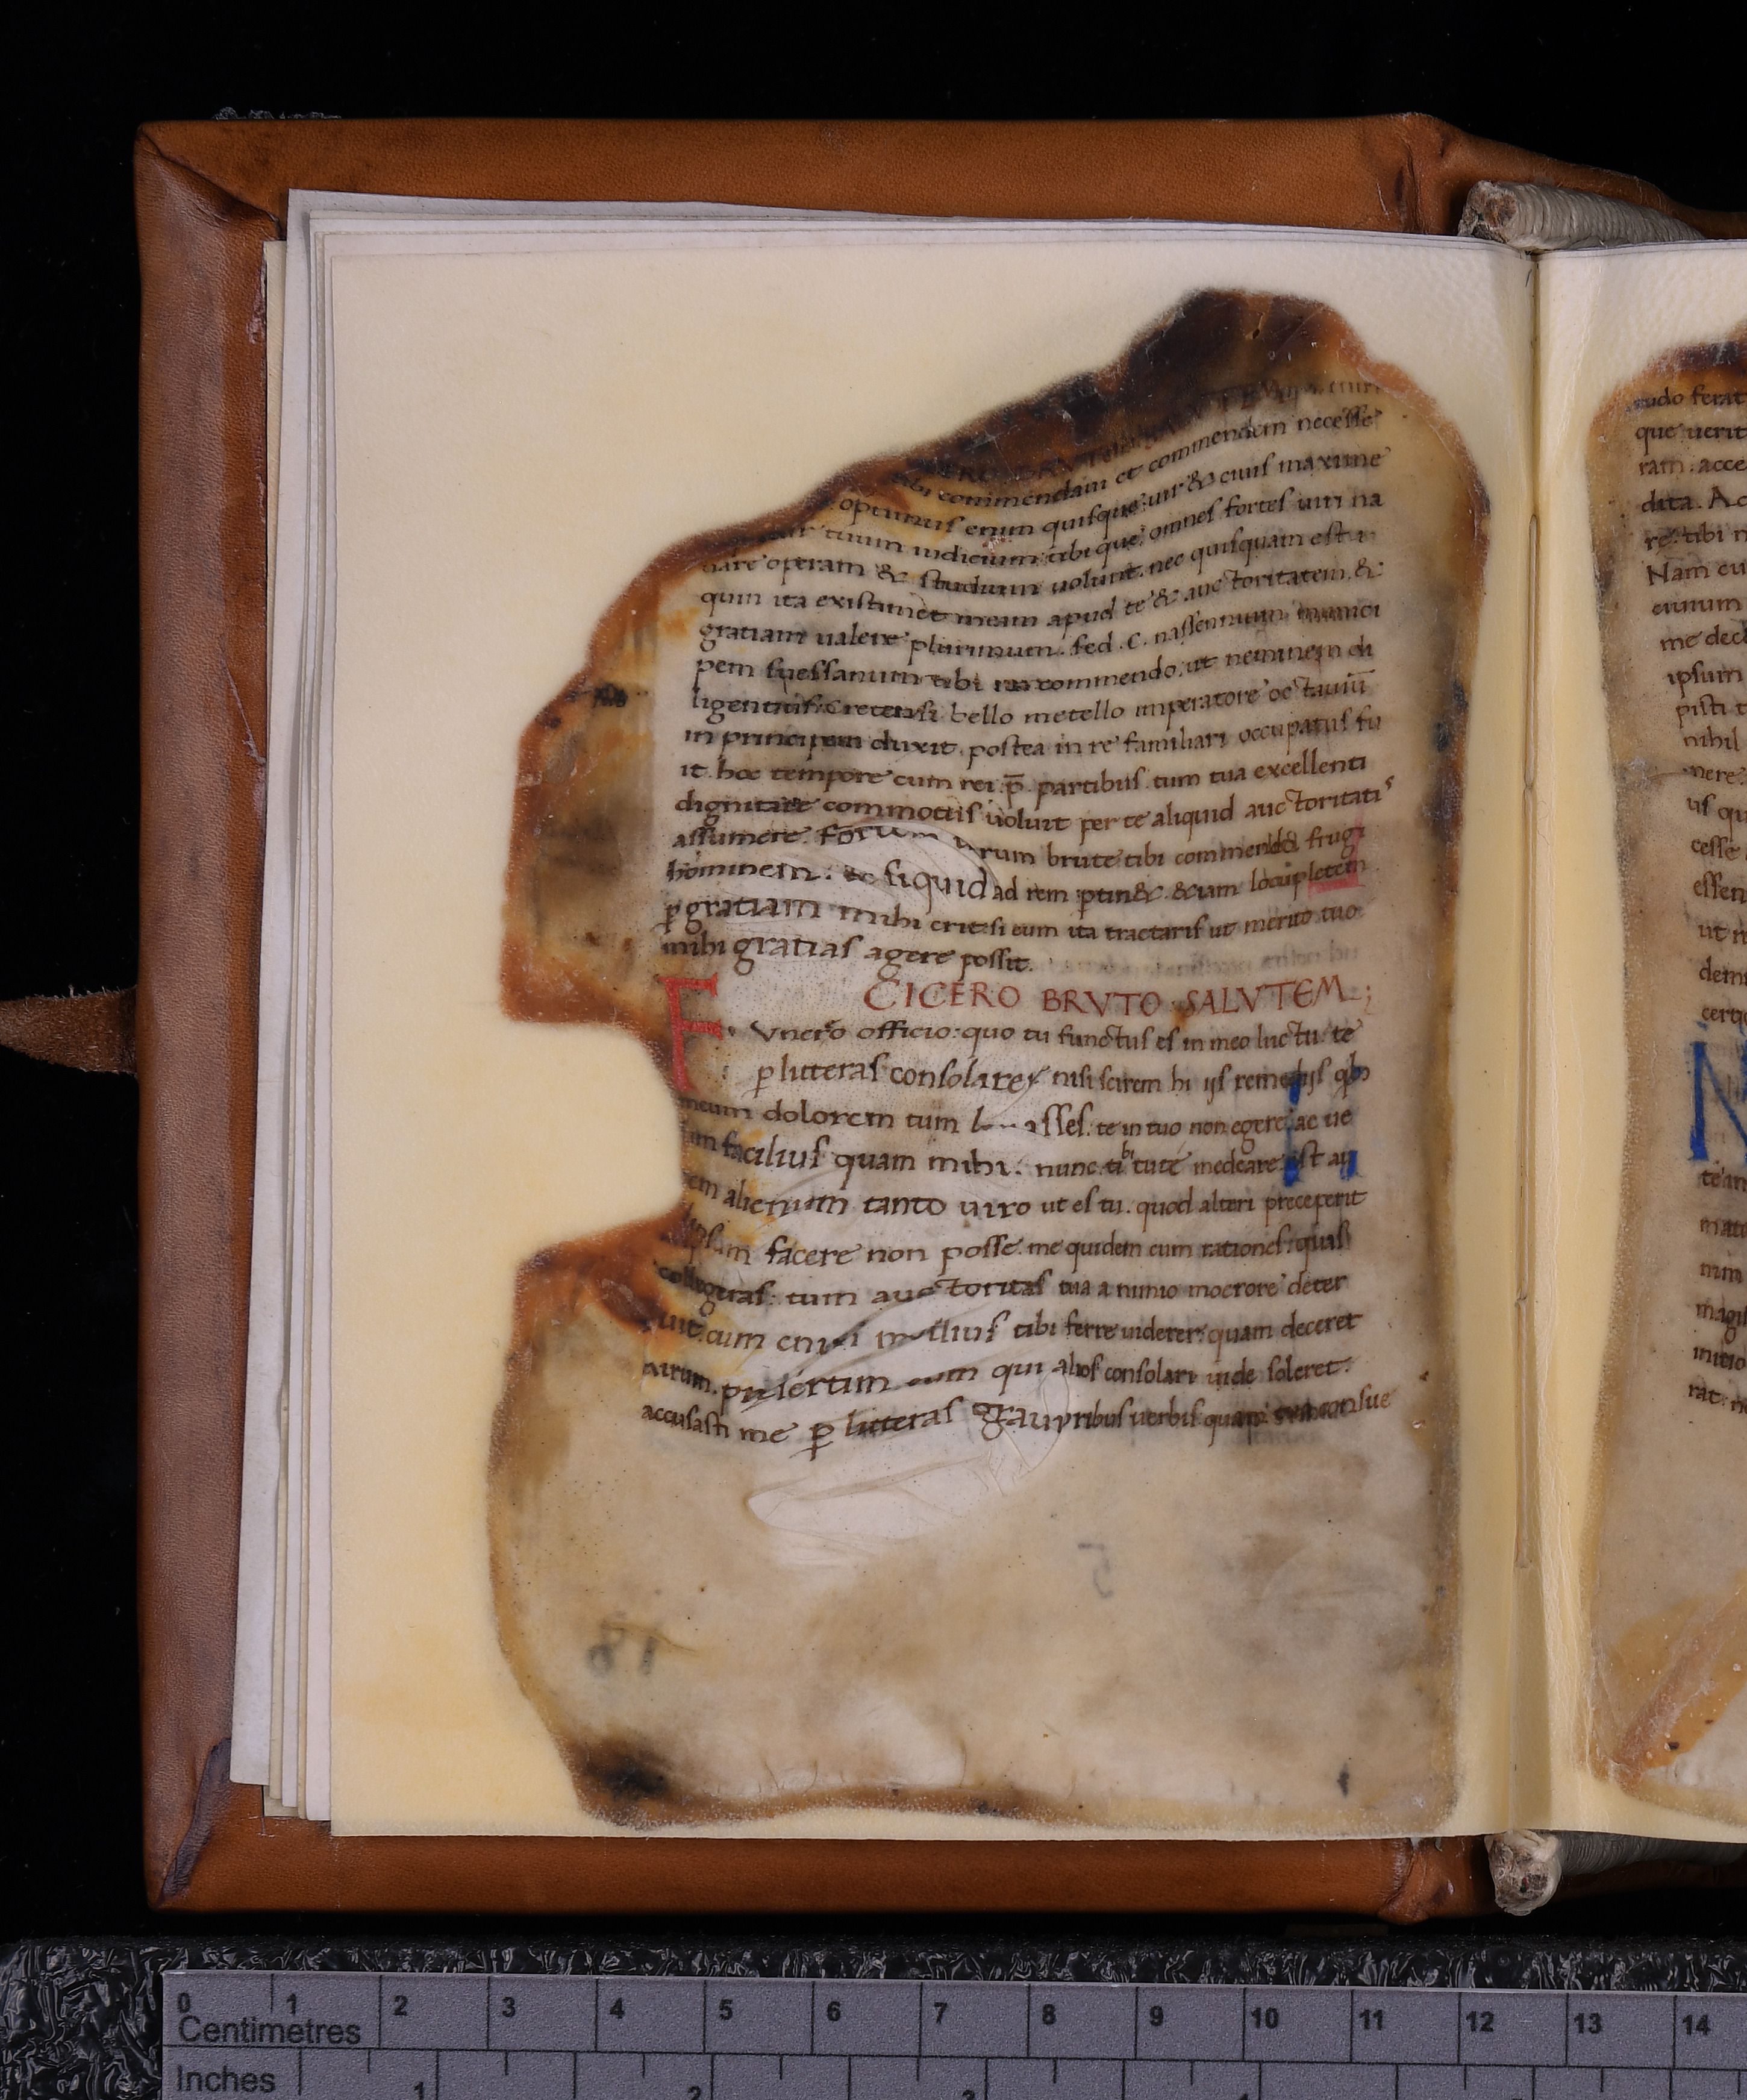 tibi commendem et commendem necesse
optimus enim quisque uir & cuius maxime
tuum iudicium tibique omnes fortes uiri na
uare operam & studium uolunt. nec quisquam est
quin ita existimet meam apud te & auctoritatem &
gratiam ualere plurimum. sed .C. nassennium munici
pem suessanum tibi ita commendo. ut neminem di
ligentius. Cretensi bello metello imperatore octauiū
in principem duxit. postea in re familiari occupatus fu
it. hoc tempore cum rei .p̄. partibus tum tua excellenti
dignitate commotus uoluit per te aliquid auctoritatis
assumere. Fortem uirum brute tibi commendo frugi
hominem. & siquid ad rem ptin& &iam locupletem
pgratiam mihi erit si eum ita tractaris ut merito tuo
mihi gratias agere possit.
CICERO BRVTO SALVTEM;
F. Vnero officio: quo tu functus es in meo luctu. te
p litteras consolarer nisi scirem hi iis remediis qb
meum dolorem tum asses. te in tuo non egere. ac ue
lim facilius quam mihi. nunc tibi tute medeare. est au
em alienum tanto uiro ut es tu. quod alteri preceperit
ipsum facere non posse. me quidem cum rationes. quas
collegeras. tum auctoritas tua a nimio moerore deter
ruit. cum mollius tibi ferre uiderer. quam deceret
uirum. presertim eum qui alios consolari inde soleret.
accusasti me p litteras grauioribus uerbis quam tua consue
18
5
tudo ferat
que uerit
ram. acce
dita. Ac
re. tibi n
Nam cu
enium
me dece
ipsum
pisti t
nihil
mere.
us qu
cesse
essen
ut n
dem
certi
N
te in
mat
nim
magis
initio
rat. n
0 1 2 3 4 5 6 7 8 9 10 11 12 13 14
Centimetres
Inches 1 2 3 4 5